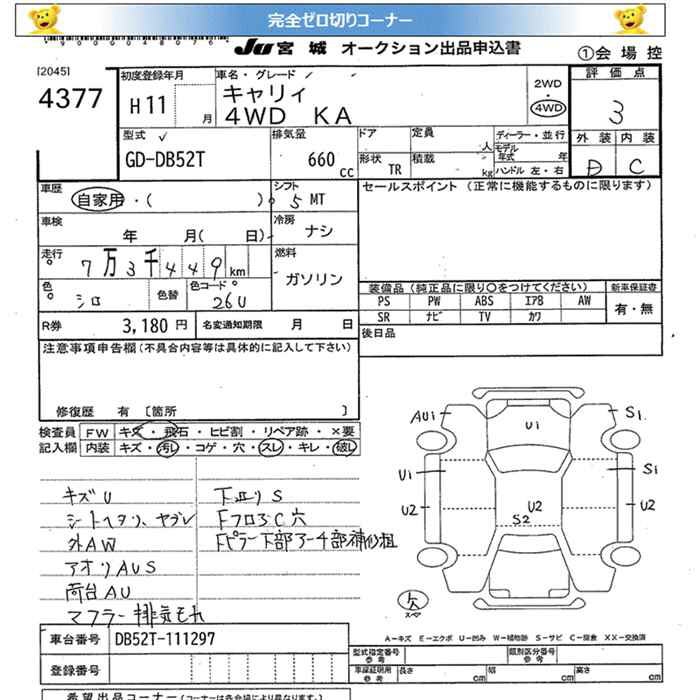 完全ゼロ切りコーナー
JU 宮城 オークション出品申込書
①会場控
[2045]
4377
初度登録年月
H11 月
車名・グレード
キャリィ
4WD KA
2WD
・
4WD
評価点
3
外装 内装
D C
型式
GD-DB52T
排気量
660 cc
ドア
定員 人
形状 TR
積載 kg
ディーラー・並行
モデル
年式 年
ハンドル 左・右
車歴
自家用・( )
シフト
5 MT
セールスポイント (正常に機能するものに限ります)
車検
年 月( 日)
冷房
ナシ
走行
7万3千449km
燃料
ガソリン
色
シロ
色替
色コード
26U
装備品 (純正品に限り○をつけてください)
新車保証書
PS PW ABS エアB AW
SR ナビ TV カワ
有・無
R券 3,180円
名変通知期限 月 日
後日品
注意事項申告欄 (不具合内容等は具体的に記入して下さい)
修復歴 有 [箇所 ]
検査員 FW キズ・飛石・ヒビ割・リペア跡・×要
記入欄 内装 キズ・汚レ・コゲ・穴・スレ・キレ・破レ
キズU
シートヘタリ、ヤブレ
外AW
アオリAUS
荷台AU
マフラー排気モレ
下廻りS
Fフロ3C穴
Fピラー下部
AU1
U1
S1
U1
S1
U2
U2
S2
U2
欠
スペア
A-キズ E-エクボ U-凹み W-補修跡 S-サビ C-腐食 XX-交換済
車台番号 DB52T-111297
登録番号
型式指定番号
参考
類別区分番号
参考
車庫証明用
参考
長さ cm
幅 cm
高さ cm
希望出品コーナー